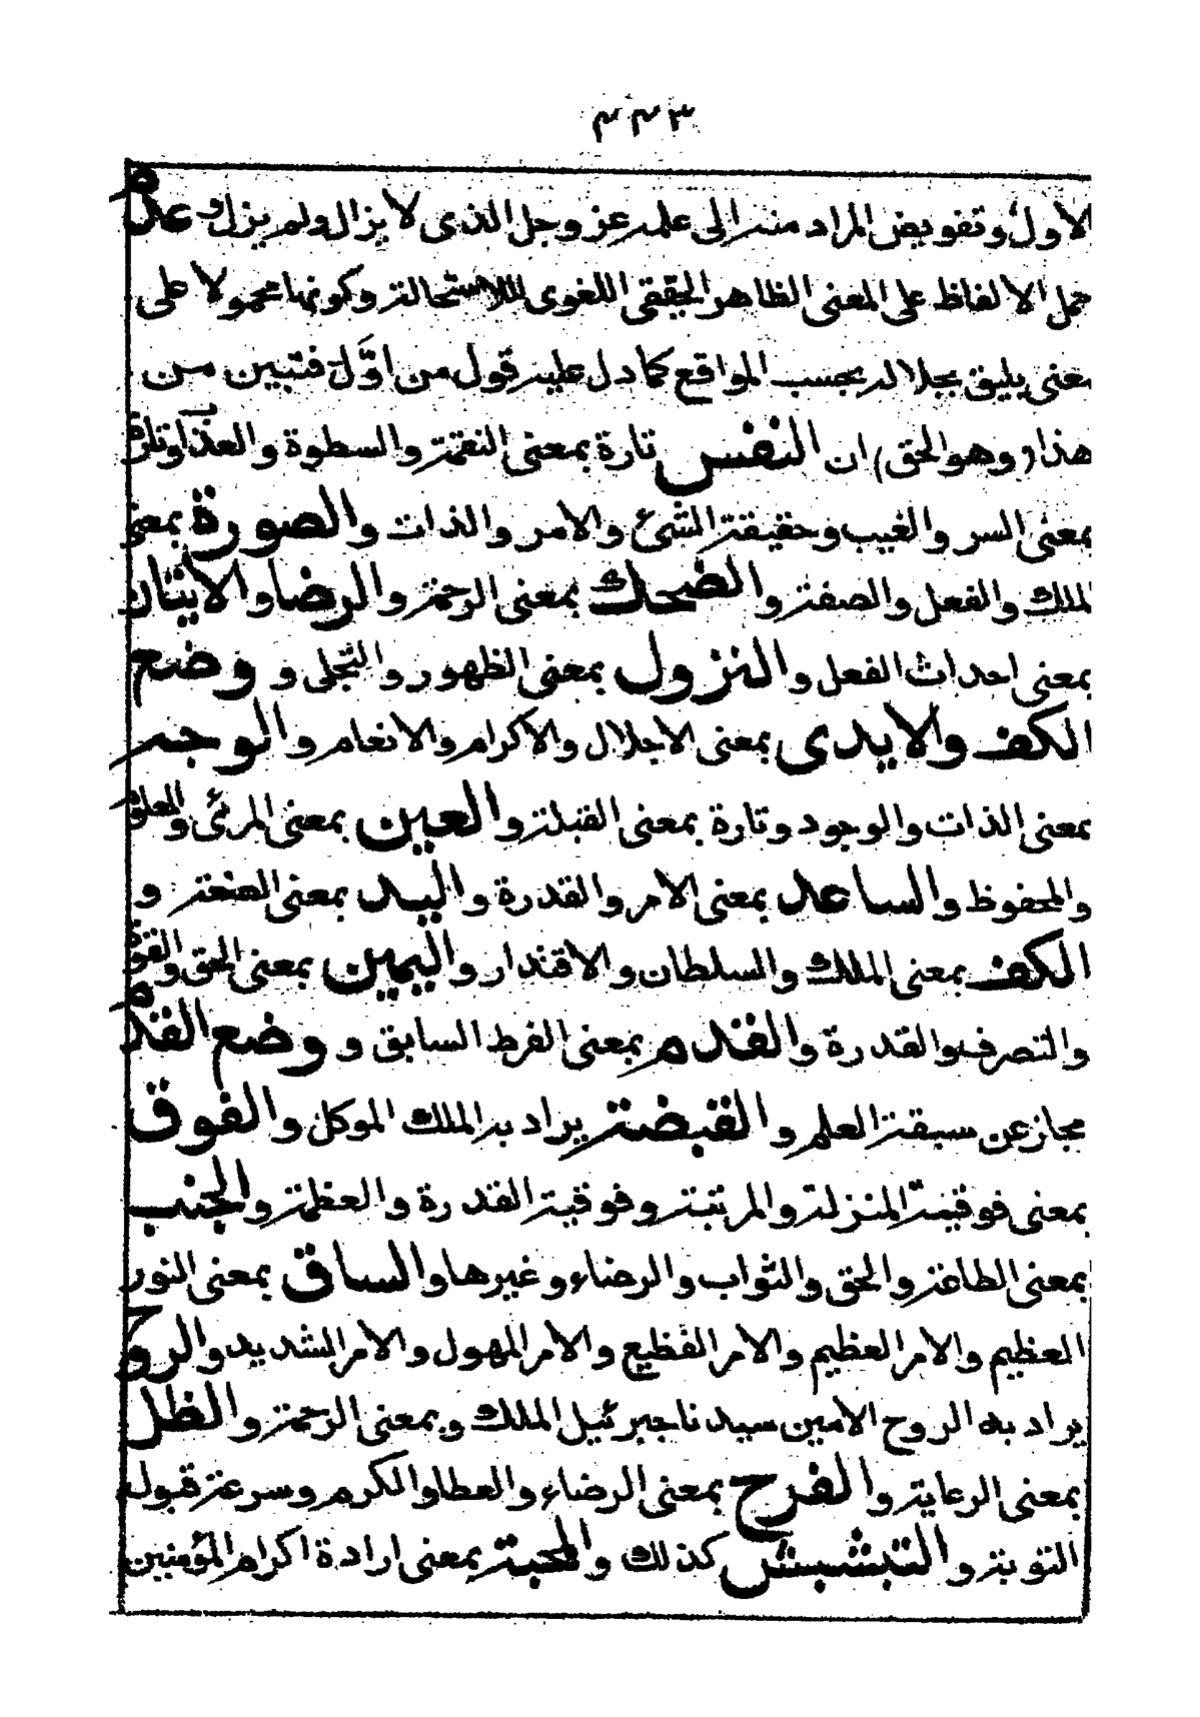 ٣٤٣
الاول وتفويض المراد منه الى علمه عز وجل الذى لا يزال ولم يزل وعدم
حمل الالفاظ على المعنى الظاهر الحقيقى اللغوى للاستحالة وكونها محمولا على
معنى يليق بجلاله بحسب المواقع كما دل عليه قول من اوَّل فتبين من
هذا (وهو الحق) ان النفس تارة بمعنى النقمة والسطوة والعذاب وتارة
بمعنى السر والغيب وحقيقة الشئ والامر والذات والصورة بمعنى
الملك والفعل والصفة والضحك بمعنى الرحمة والرضا والايتان
بمعنى احداث الفعل والنزول بمعنى الظهور والتجلى و وضع
الكف والايدى بمعنى الاجلال والاكرام والانعام والوجه
بمعنى الذات والوجود وتارة بمعنى القبلة والعين بمعنى المرئى والمعلوم
والمحفوظ والساعد بمعنى الامر والقدرة واليد بمعنى و
الكف بمعنى الملك والسلطان والاقتدار واليمين بمعنى الحق والقوة
والتصرف والقدرة والقدم بمعنى الفرط السابق و وضع القدم
مجاز عن سبقة العلم والقبضة يراد به الملك الموكل والفوق
بمعنى فوقية المنزلة والمرتبة وفوقية القدرة والعظمة والجنب
بمعنى الطاعة والحق والثواب والرضاء وغيرها والساق بمعنى النور
العظيم والامر العظيم والامر الفظيع والامر المهول والامر الشديد والروح
يراد به الروح الامين سيدنا جبرئيل الملك وبمعنى الرحمة والظل
بمعنى الرعاية والفرح بمعنى الرضاء والعطا والكرم وسرعة قبول
التوبة والتبشبش كذلك والمحبة بمعنى ارادة اكرام المؤمنين